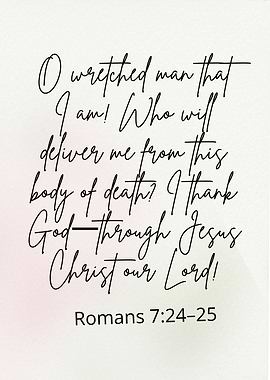 O wretched man that
I am! Who will
deliver me from this
body of death? I thank
God—through Jesus
Christ our Lord!
Romans 7:24–25